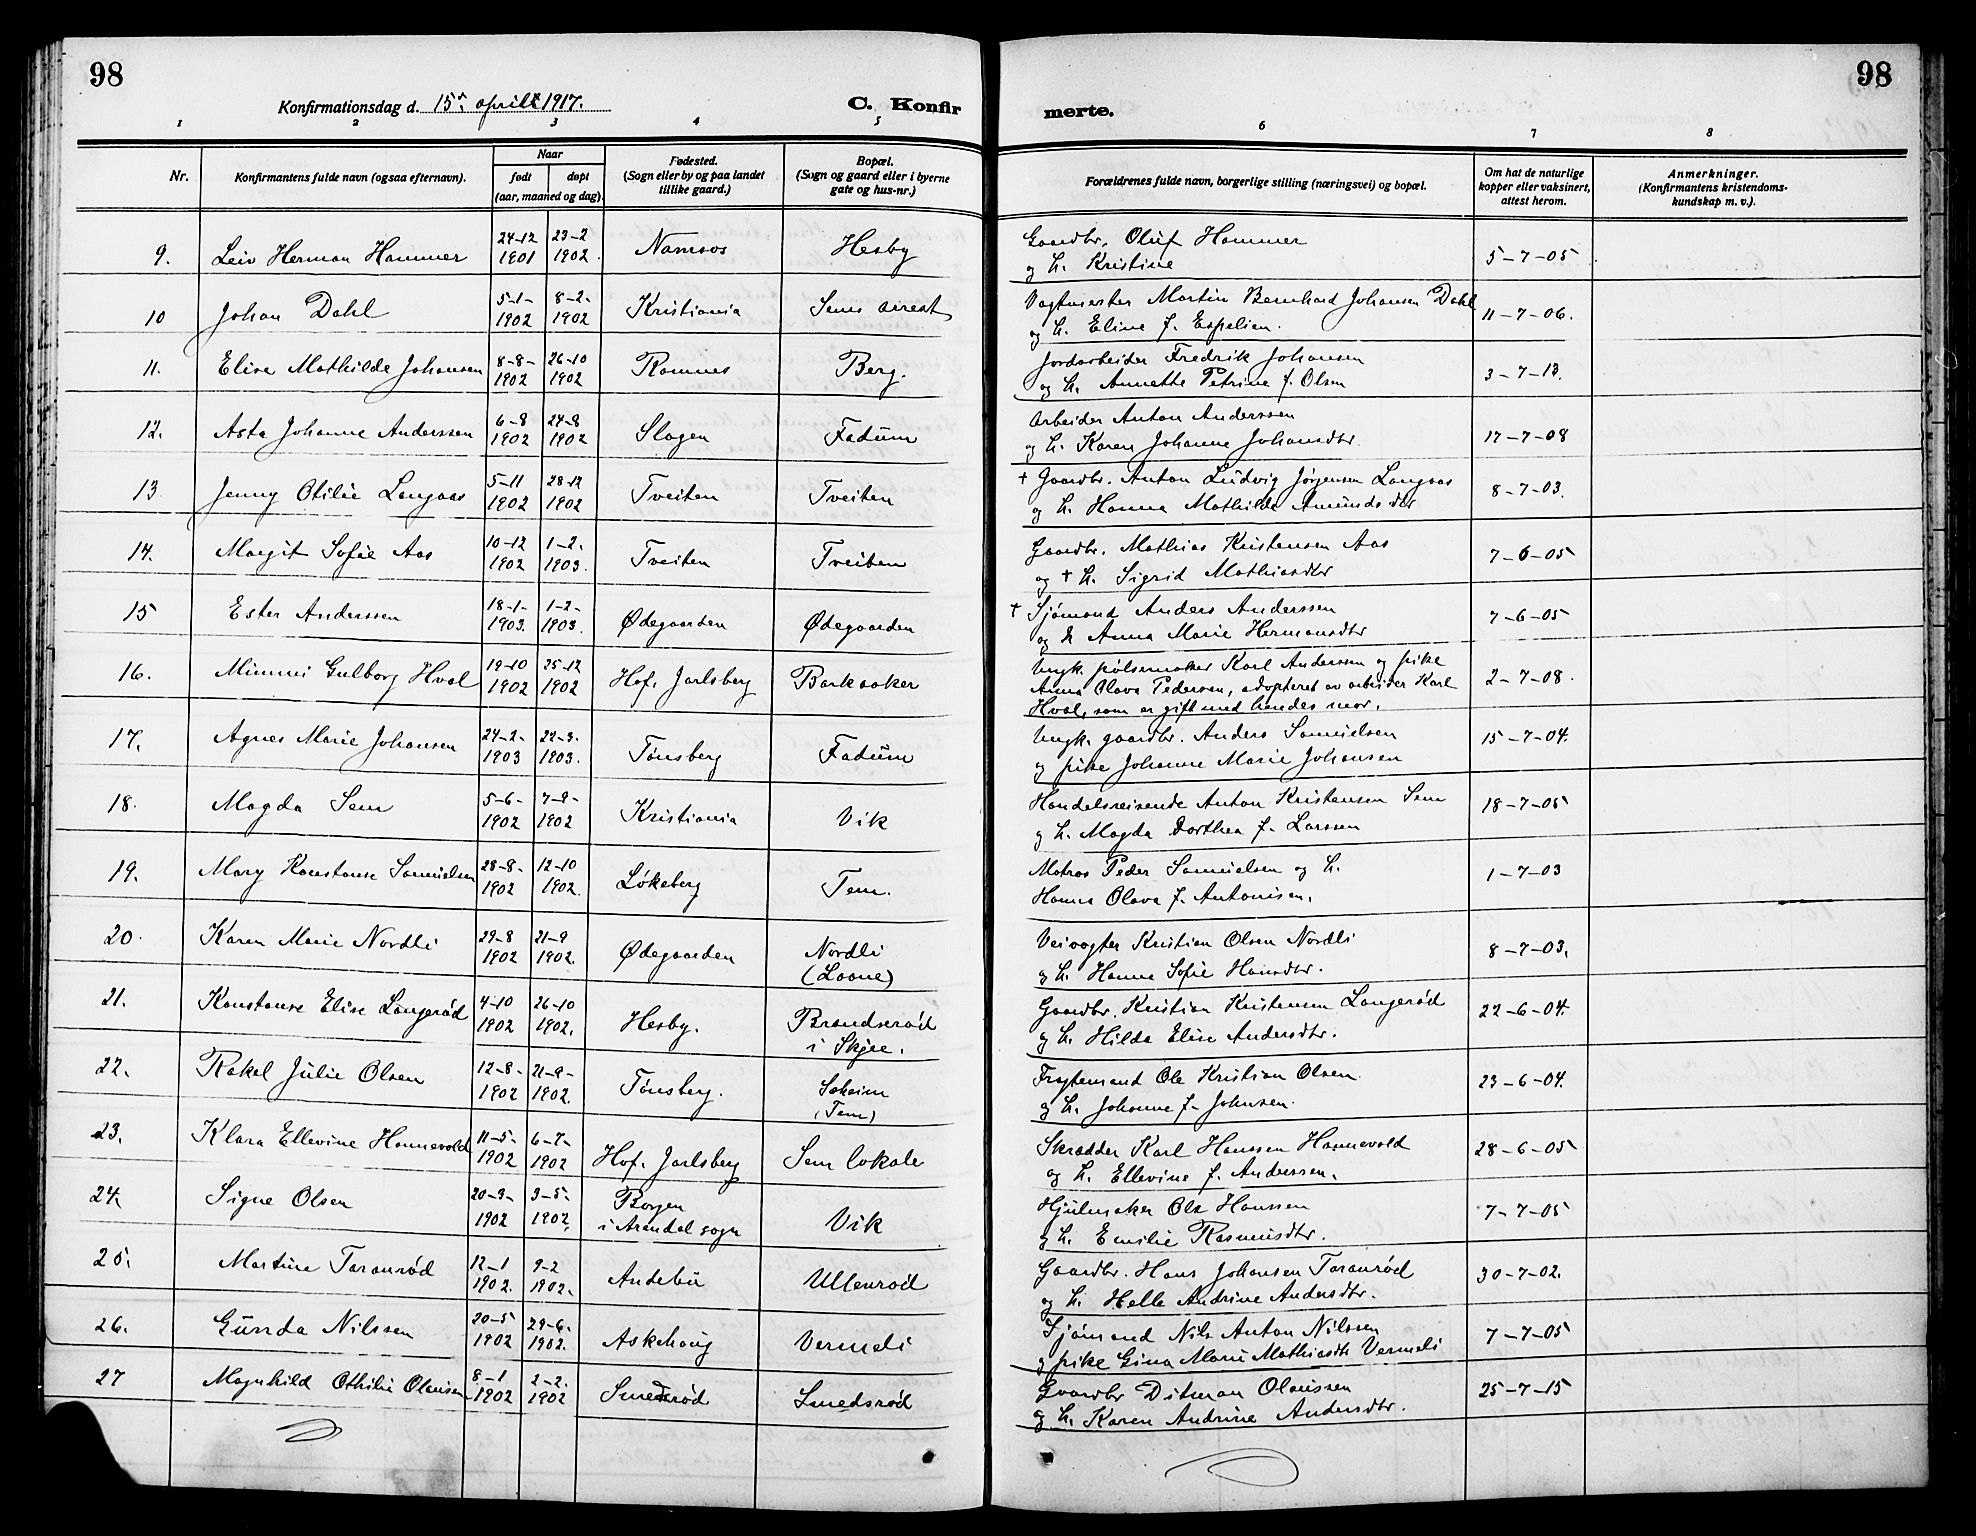 98
98
Konfirmationsdag d. 15de april 1917.
C. Konfir
merte.
1 2 3 4 5 6 7 8
Nr.
Konfirmantens fulde navn (ogsaa efternavn).
Naar
født
døpt
(aar, maaned og dag)
Fødested.
(Sogn eller by og paa landet
tillike gaard.)
Bopæl.
(Sogn og gaard eller i byerne
gate og hus-nr.)
Forældrenes fulde navn, borgerlige stilling (næringsvei) og bopæl.
Om hat de naturlige
kopper eller vaksinert,
attest herom.
Anmerkninger.
(Konfirmantens kristendoms-
kundskap m. v.).
9. Leiv Herman Hammer 24-12 1901 23-2 1902. Namsos Hesby
Gaardbr. Oluf Hammer
og h. Kristine
5-7-05
10 Johan Dahl 5-1- 1902 8-2- 1902 Kristiania Sems arrest
Vagtmester Martin Bernhard Johansen Dahl
og h. Eline f. Espelien.
11-7-06.
11. Elise Mathilde Johansen 8-8- 1902 26-10 1902 Ramnes Berg.
Jordarbeider Fredrik Johansen
og h. Annette Petrine f. Olsen
3-7-13.
12. Asta Johanne Anderssen 6-8 1902 24-8 1902 Slagen Fadum
Arbeider Anton Anderssen
og h. Karen Johanne Johansdtr.
17-7-08
13. Jenny Otilie Langaas 5-11 1902 28-12 1902 Tveiten Tveiten
† Gaardbr. Anton Ludvig Jørgensen Langaas
og h. Hanna Mathilde Amundsdtr
8-7-03.
14. Margit Sofie Aas 10-12 1902 1-2. 1903. Tveiten Tveiten
Gaardbr. Mathias Kristensen Aas
og † h. Sigrid Mathiasdtr
7-6-05
15 Ester Anderssen 18-1- 1903. 1-2- 1903. Ødegaarden Ødegaarden
† Sjømand Anders Anderssen
og h Anna Marie Hermansdtr
7-6-05
16. Minnni Gulborg Hval 19-10 1902 25-12 1902 Hof, Jarlsberg Barkaaker
Ungk. pølsemaker Karl Anderssen og pike
Anna Olava Pedersen, adopteret av arbeider Karl
Hval, som er gift med hendes mor.
2-7-08.
17. Agnes Marie Johansen 24-2- 1903 22-3. 1903. Tønsberg Fadum
Ungk. gaardbr. Anders Samuelsen
og pike Johanne Marie Johansen
15-7-04.
18. Magda Sem 5-6- 1902 7-9- 1902 Kristiania Vik
Handelsreisende Anton Kristensen Sem
og h. Magda Dorthea f. Larssen
18-7-05
19. Mary Konstanse Samuelsen 28-8- 1902 12-10 1902. Løkeberg Tem.
Matros Peder Samuelsen og h.
Hanna Olava f. Antonisen.
1-7-03
20. Karen Marie Nordli 29-8 1902 21-9 1902. Ødegaarden Nordli
(Laane)
Veivogter Kristian Olsen Nordli
og h. Hanna Sofie Hansdtr.
8-7-03.
21. Konstanse Elise Langerød 4-10 1902 26-10 1902. Hesby. Brandserød
i Skjee.
Gaardbr. Kristian Kristensen Langerød
og h. Hilda Elise Andersdtr.
22-6-04.
22. Rakel Julie Olsen 12-8- 1902 21-9- 1902. Tønsberg. Solheim
(Tem)
Fragtemand Ole Kristian Olsen
og h. Johanne f. Johnsen.
23-6-04.
23. Klara Ellevine Hannevold 11-5- 1902 6-7- 1902 Hof, Jarlsberg Sem lokale
Skrædder Karl Hanssen Hannevold
og h. Ellevine f. Anderssen.
28-6-05
24. Signe Olsen 20-3- 1902 3-5- 1902. Borgen
i Arendal sogn Vik
Hjulmaker Ole Hanssen
og h. Emilie Rasmusdtr.
7-7-05
25. Martine Taranrød 12-1 1902. 9-2 1902. Andebu Ullenrød
Gaardbr. Hans Johansen Taranrød
og h. Helle Andrine Andersdtr.
30-7-02.
26. Gunda Nilssen 20-5 1902 29-6. 1902. Askehaug Vermeli
Sjømand Nils Anton Nilssen
og pike Gina Marie Mathiasdtr Vermeli
7-7-05
27 Magnhild Othilie Olaussen 8-1 1902 2-2. 1902 Smedsrød Smedsrød
Gaardbr Ditman Olaussen
og h. Karen Andrine Andersdtr.
25-7-15